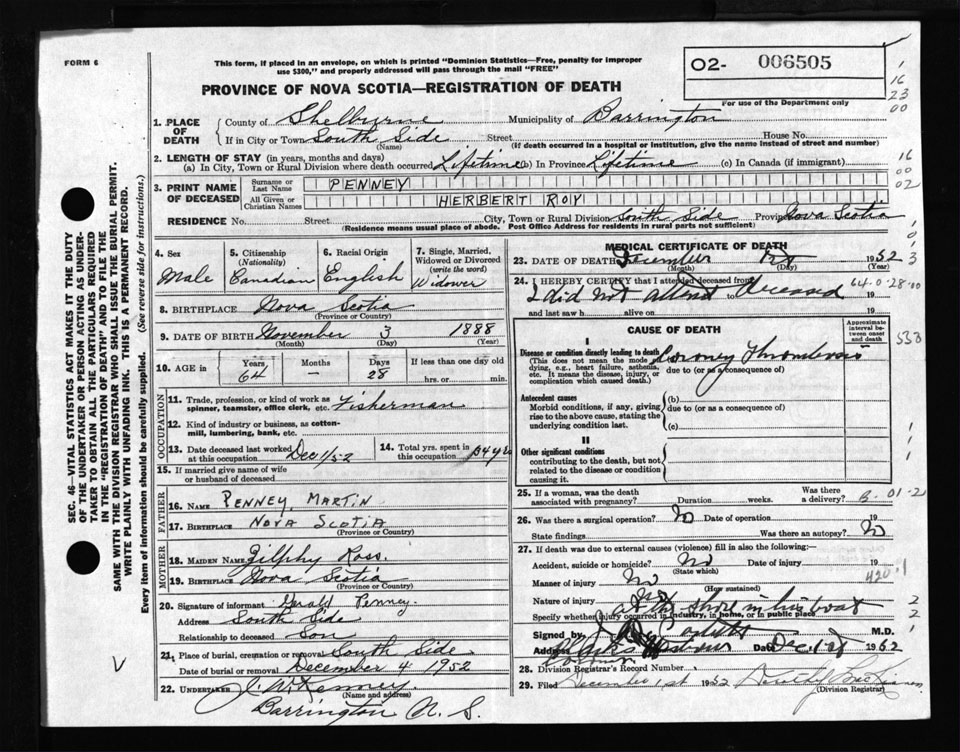 FORM 6
This form, if placed in an envelope, on which is printed "Dominion Statistics—Free, penalty for improper
use $300," and properly addressed will pass through the mail "FREE"
PROVINCE OF NOVA SCOTIA—REGISTRATION OF DEATH
02- 006505
For use of the Department only
1 16 23 00
16 00 02
SEC. 46—VITAL STATISTICS ACT MAKES IT THE DUTY
OF THE UNDERTAKER OR PERSON ACTING AS UNDER-
TAKER TO OBTAIN ALL THE PARTICULARS REQUIRED
IN THE "REGISTRATION OF DEATH" AND TO FILE THE
SAME WITH THE DIVISION REGISTRAR WHO SHALL ISSUE THE BURIAL PERMIT.
WRITE PLAINLY WITH UNFADING INK. THIS IS A PERMANENT RECORD.
Every item of information should be carefully supplied. (See reverse side for instructions.)
1. PLACE OF DEATH
County of Shelburne Municipality of Barrington
If in City or Town South Side Street House No.
(Name) (If death occurred in a hospital or institution, give the name instead of street and number)
2. LENGTH OF STAY (in years, months and days)
(a) In City, Town or Rural Division where death occurred Lifetime (b) In Province Lifetime (c) In Canada (if immigrant)
3. PRINT NAME OF DECEASED
Surname or Last Name PENNEY
All Given or Christian Names HERBERT ROY
RESIDENCE No. Street City, Town or Rural Division South Side Province Nova Scotia
(Residence means usual place of abode. Post Office Address for residents in rural parts not sufficient)
4. Sex Male
5. Citizenship (Nationality) Canadian
6. Racial Origin English
7. Single, Married, Widowed or Divorced (write the word) Widower
8. BIRTHPLACE Nova Scotia
(Province or Country)
9. DATE OF BIRTH November 3 1888
(Month) (Day) (Year)
10. AGE in Years 64 Months — Days 28 If less than one day old hrs. or min.
OCCUPATION
11. Trade, profession, or kind of work as
spinner, teamster, office clerk, etc. Fisherman
12. Kind of industry or business, as cotton-
mill, lumbering, bank, etc.
13. Date deceased last worked at this occupation Dec 1/52
14. Total yrs. spent in this occupation
15. If married give name of wife
or husband of deceased
FATHER
16. NAME PENNEY MARTIN
17. BIRTHPLACE NOVA SCOTIA
(Province or Country)
MOTHER
18. MAIDEN NAME Zilphy Ross
19. BIRTHPLACE Nova Scotia
(Province or Country)
20. Signature of informant Gerald Penney
Address South Side
Relationship to deceased Son
21. Place of burial, cremation or removal South Side
Date of burial or removal December 4 1952
22. UNDERTAKER J. A. McKenney
(Name and address)
Barrington N. S.
MEDICAL CERTIFICATE OF DEATH
23. DATE OF DEATH December 1st 1952
(Month) (Day) (Year)
24. I HEREBY CERTIFY that I attended deceased from 64-0-28-00
I did not attend deceased to 19
and last saw h alive on 19
CAUSE OF DEATH
Approximate interval between onset and death
533
I
Disease or condition directly leading to death Coroney Thrombosis
(This does not mean the mode of dying, e.g., heart failure, asthenia, etc. It means the disease, injury, or complication which caused death.)
due to (or as a consequence of)
Antecedent causes
Morbid conditions, if any, giving rise to the above cause, stating the underlying condition last.
(b)
due to (or as a consequence of)
(c)
II
Other significant conditions
contributing to the death, but not related to the disease or condition causing it.
25. If a woman, was the death associated with pregnancy? Duration weeks. Was there a delivery?
26. Was there a surgical operation? No Date of operation 19
State findings Was there an autopsy? No
27. If death was due to external causes (violence) fill in also the following:—
Accident, suicide or homicide? No Date of injury 19
(State which) 420.1
Manner of injury No
(How sustained)
Nature of injury No
at the shore in his boat
Specify whether injury occurred in industry, in home, or in public place
Signed by M.D.
Address Date Dec 1st 1952
Coroner
28. Division Registrar's Record Number
29. Filed December 1st 1952
(Division Registrar)